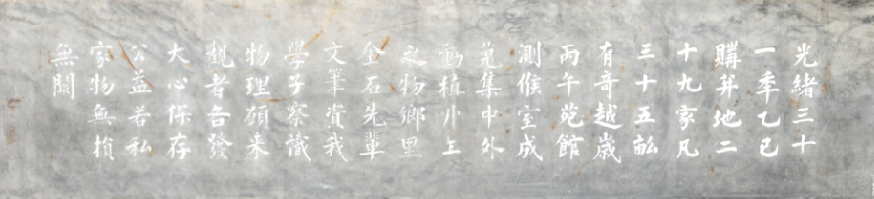 光緒三十
一年乙巳
購并地二
十九家凡
三十五畝
有奇越歲
丙午苑館
測候室成
蒐集中外
動植卝工
之物鄉里
金石先輩
文筆資我
學子察識
物理願來
觀者各發
大心保存
公益若私
家物無損
無闕